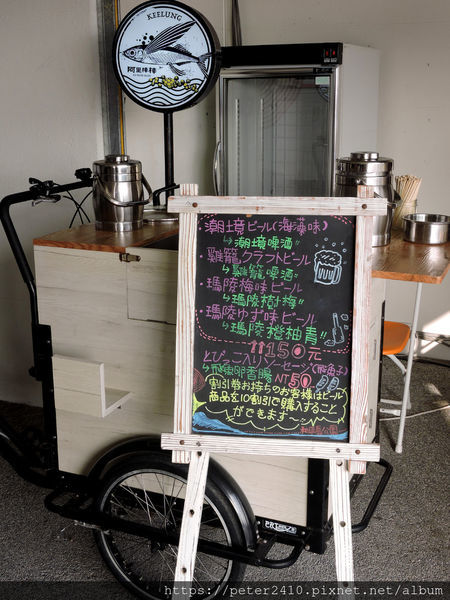 KEELUNG
阿里棒棒
潮境ビール(海藻味)
↳潮境啤酒"
・雞籠クラフトビール
↳雞籠啤酒"
・瑪陵梅味ビール
↳瑪陵樹梅"
・瑪陵ゆず味ビール
↳瑪陵橙柚青"
150元
とびっこ入りソーセージ(飛魚子)
↳飛魚卵香腸 NT50
割引券お持ちのお客様はビール
商品を10割引で購入すること
ができます～
和平島公園
https://peter2410.pixnet.net/album